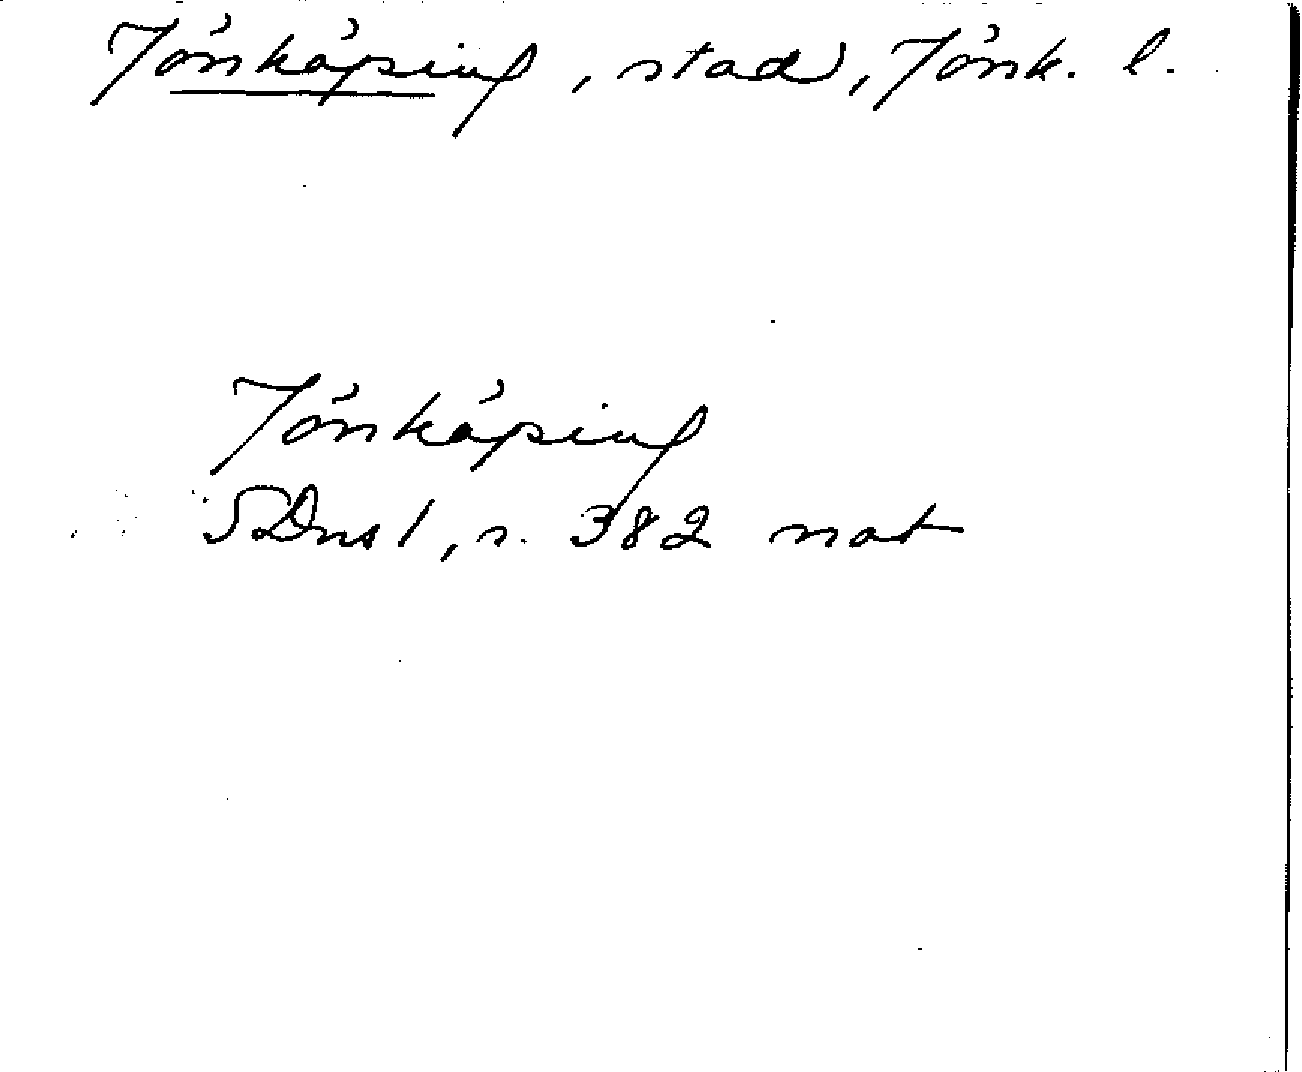 Jönköping, stad, Jönk. l.
Jönköping
SDns 1, s. 382 not